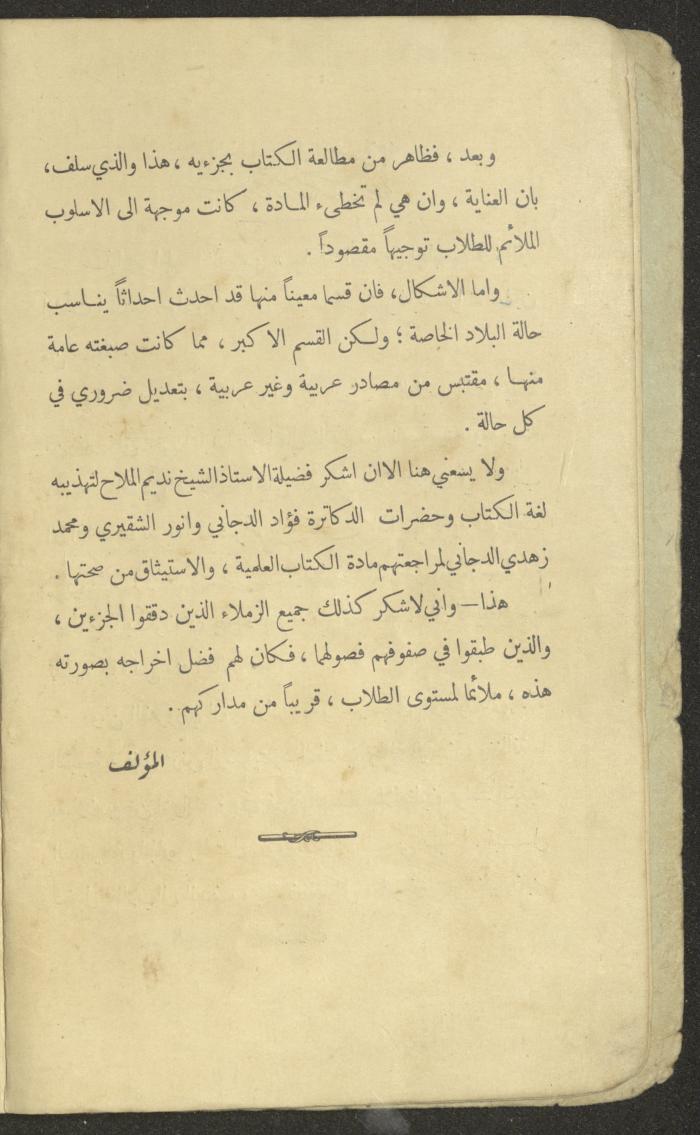 وبعد ، فظاهر من مطالعة الكتاب بجزءيه ، هذا والذي سلف ،
بان العناية ، وان هي لم تخطىء المادة ، كانت موجهة الى الاسلوب
الملائم للطلاب توجيهاً مقصوداً .
واما الاشكال ، فان قسما معيناً منها قد احدث احداثاً يناسب
حالة البلاد الخاصة ؛ ولكن القسم الاكبر ، مما كانت صبغته عامة
منها ، مقتبس من مصادر عربية وغير عربية ، بتعديل ضروري في
كل حالة .
ولا يسعني هنا الا ان اشكر فضيلة الاستاذ الشيخ نديم الملاح لتهذيبه
لغة الكتاب وحضرات الدكاترة فؤاد الدجاني وانور الشقيري ومحمد
زهدي الدجاني لمراجعتهم مادة الكتاب العلمية ، والاستيثاق من صحتها .
هذا — واني لاشكر كذلك جميع الزملاء الذين دققوا الجزءين ،
والذين طبقوا في صفوفهم فصولهما ، فكان لهم فضل اخراجه بصورته
هذه ، ملائما لمستوى الطلاب ، قريباً من مداركهم .
المؤلف